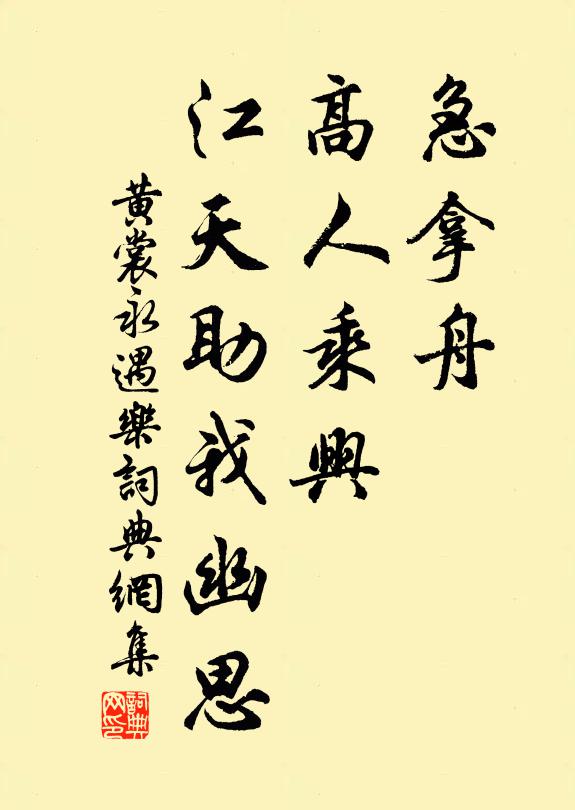 急拿舟
高人乘興
江天助我幽思
黃裳永遇樂詞典網集
詞典網印